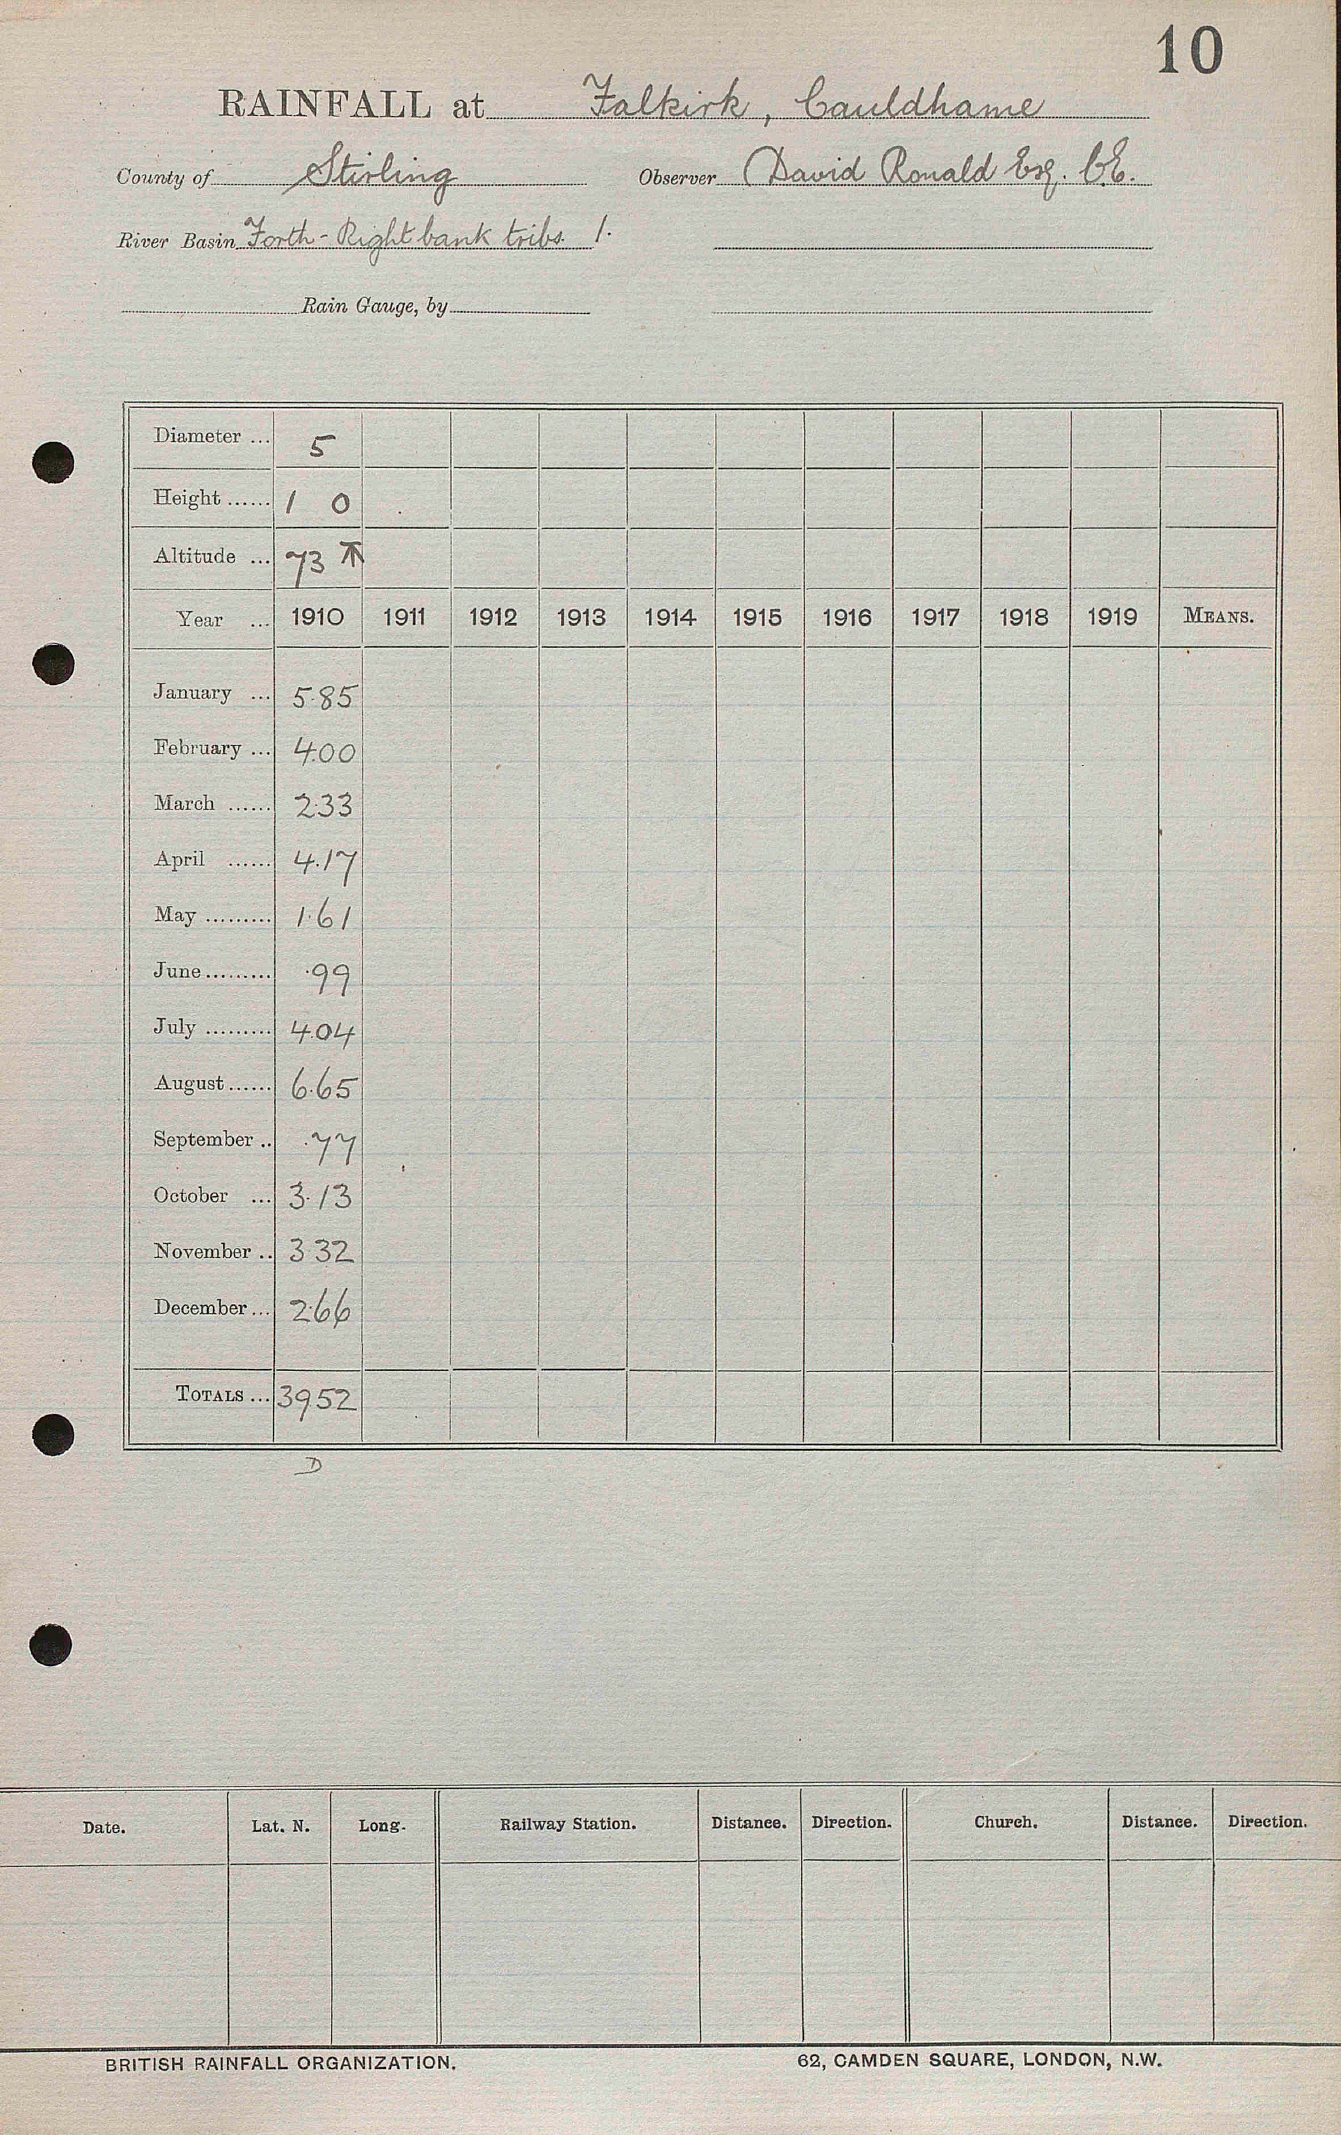 10
RAINFALL at Falkirk, Cauldhame
County of Stirling Observer David Ronald Esq. C.E.
River Basin Forth - Right bank tribs. 1.
Rain Gauge, by
Diameter ... 5
Height ...... 1 0
Altitude ... 73
Year ... 1910 1911 1912 1913 1914 1915 1916 1917 1918 1919 MEANS.
January ... 5.85
February ... 4.00
March ...... 2.33
April ...... 4.17
May ......... 1.61
June ......... .99
July ......... 4.04
August ...... 6.65
September .. .77
October ... 3.13
November .. 3 32
December ... 2.66
TOTALS ... 3952
D
Date. Lat. N. Long. Railway Station. Distance. Direction. Church. Distance. Direction.
BRITISH RAINFALL ORGANIZATION. 62, CAMDEN SQUARE, LONDON, N.W.